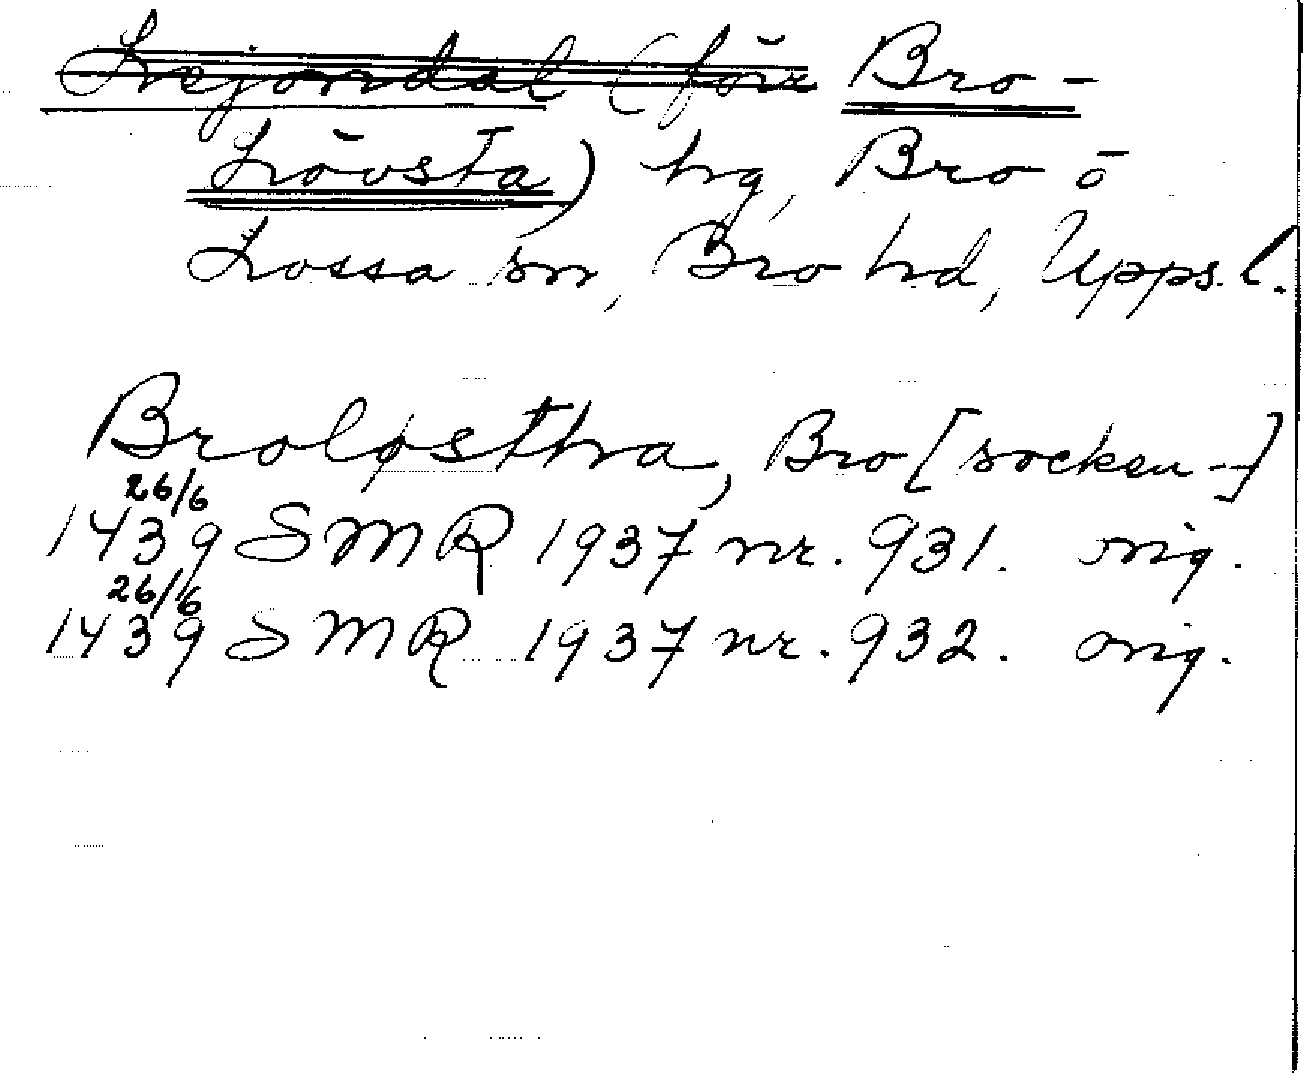 Lejondal (förr Bro-
Lövsta) hg, Bro o
Lossa sn, Bro hd, Upps. l.
Broløstha, Bro [socken -]
26/6
1439 SMR 1937 nr. 931. orig.
26/6
1439 SMR 1937 nr. 932. orig.